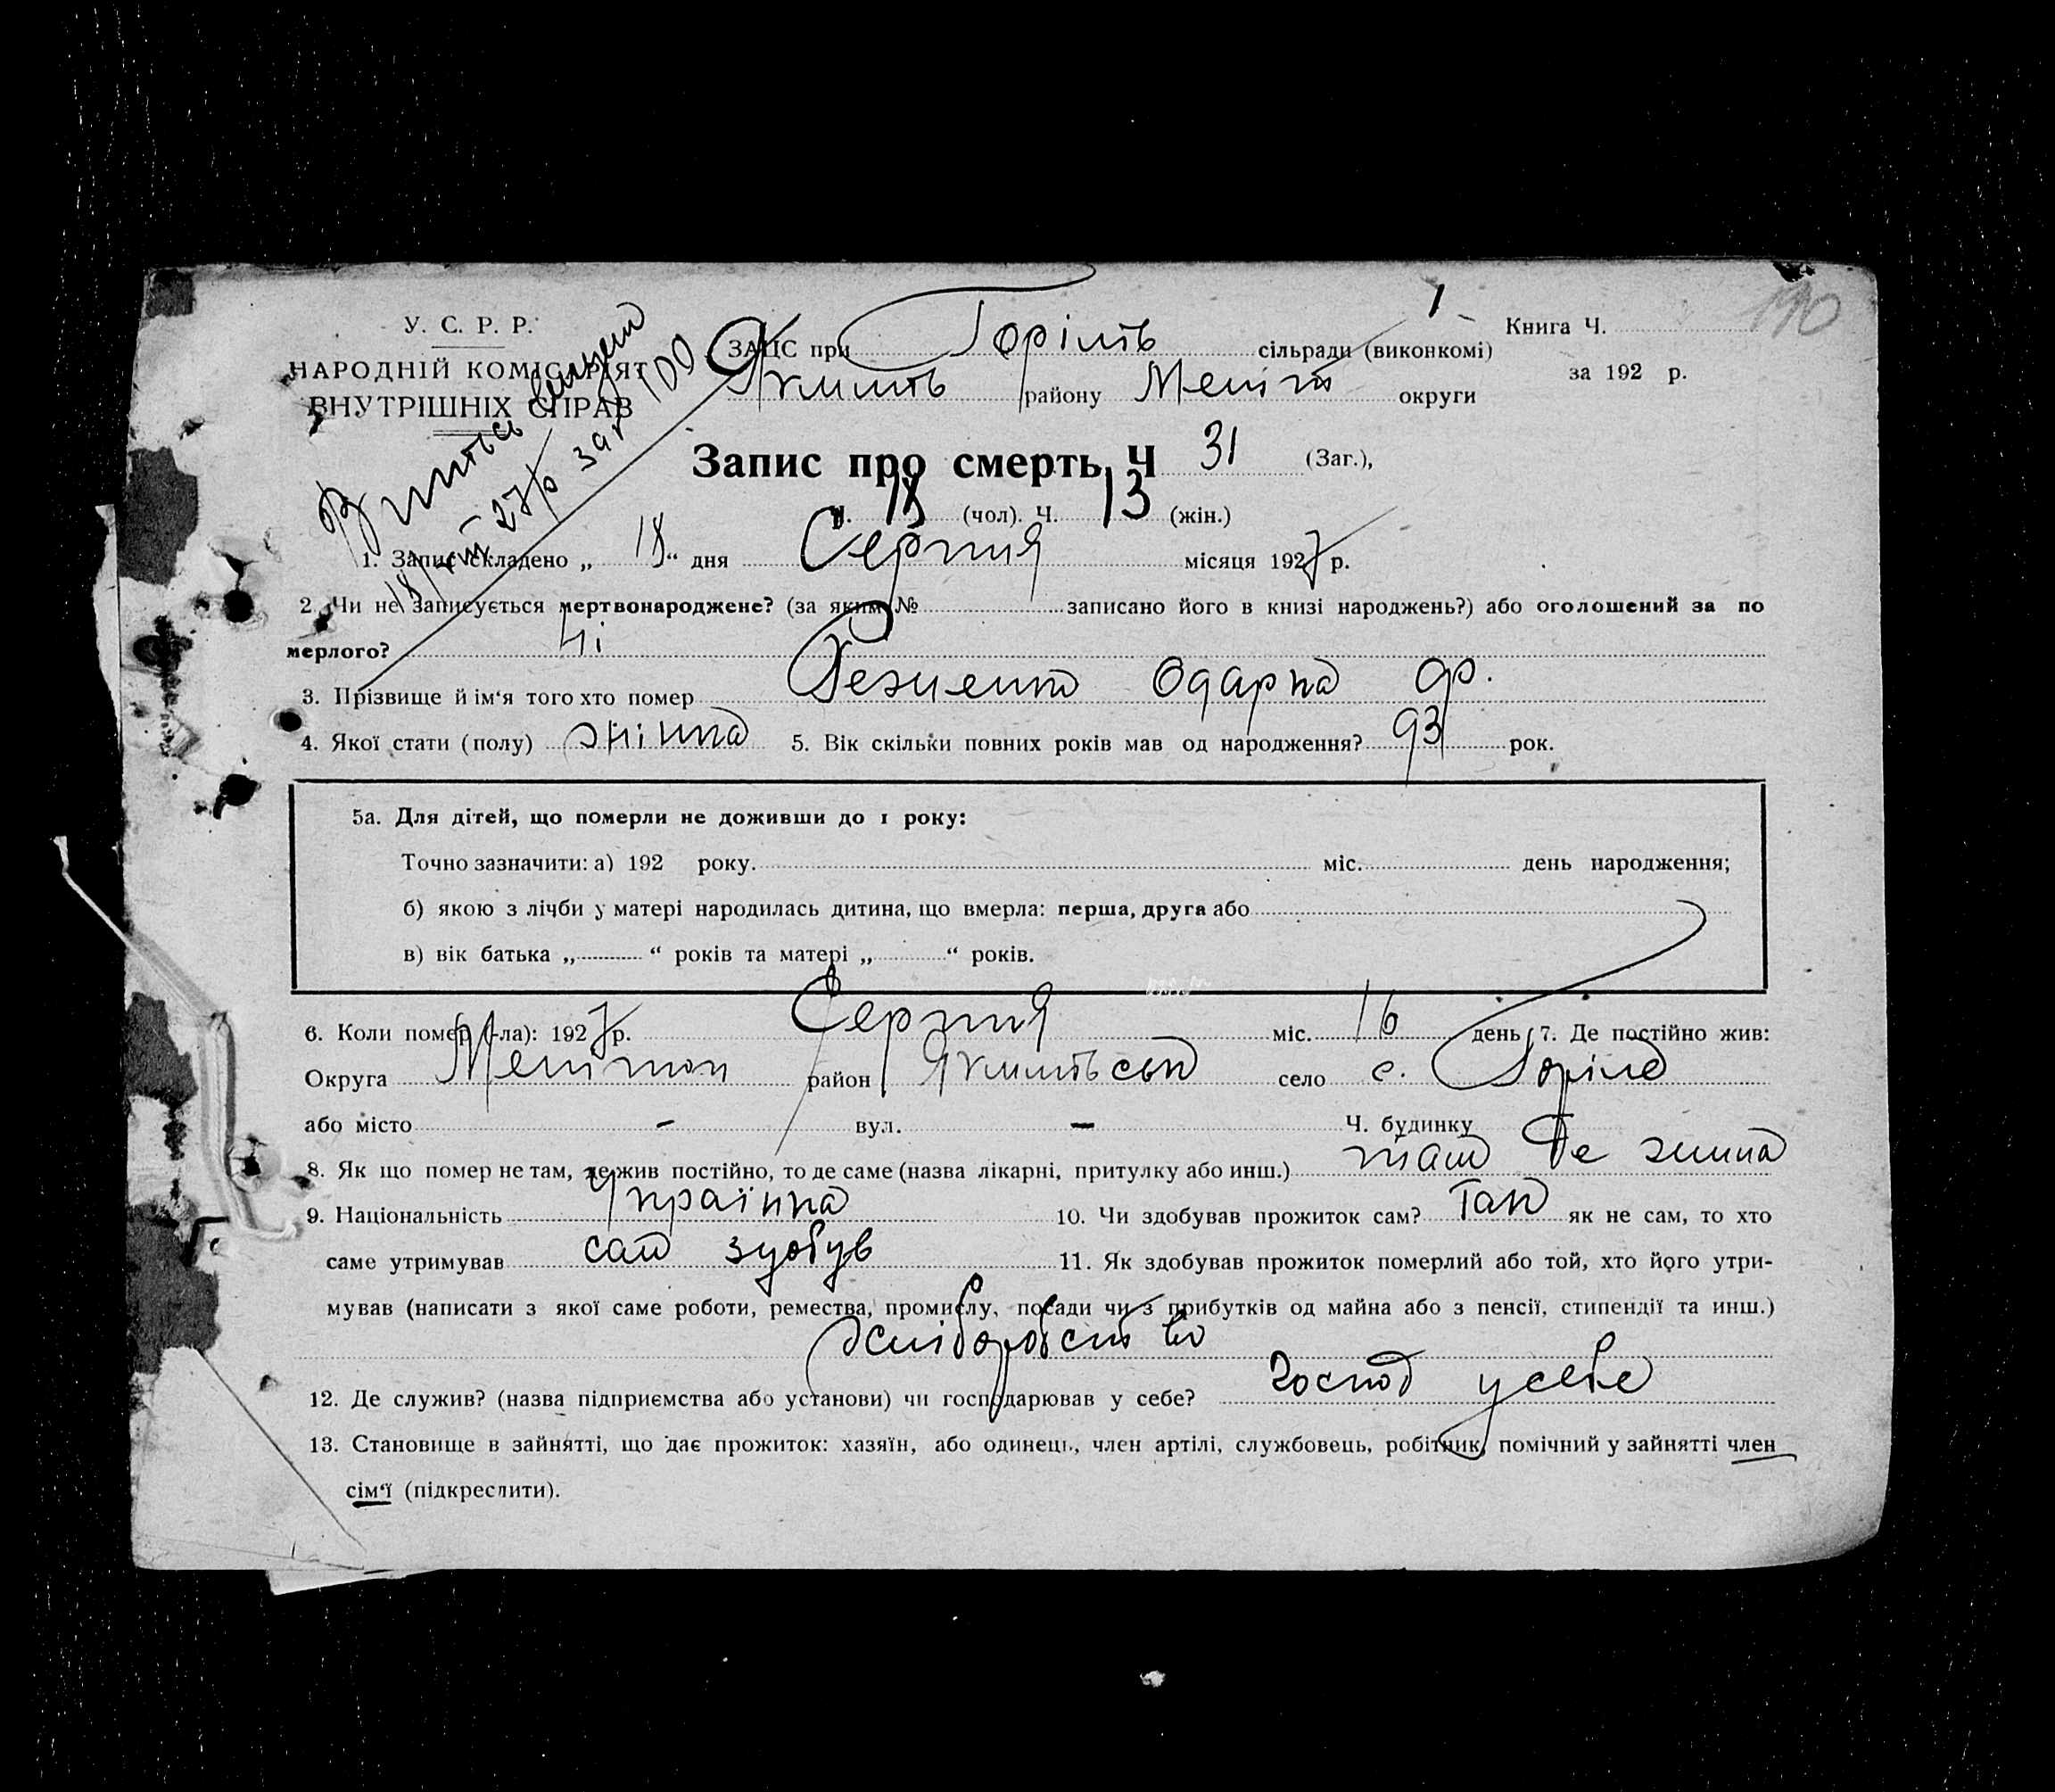 У. С. Р. Р.
НАРОДНІЙ КОМІСАРІЯТ
ВНУТРІШНІХ СПРАВ
ЗАЦС при Горіл сільради (виконкомі)
Якимів району Меліт округи
Книга Ч.
за 192 р.
110
Запис про смерть Ч 31 (Заг.),
Ч. 18 (чол). Ч. 13 (жін.)
1. Запис складено „ 18 “ дня Серпня місяця 1927 р.
2. Чи не записується мертвонароджене? (за яким № записано його в книзі народжень?) або оголошений за по
мерлого? Ні
3. Прізвище й ім‘я того хто помер Одарка Ф.
4. Якої стати (полу) жінка 5. Вік скільки повних років мав од народження? 93 рок.
5а. Для дітей, що померли не доживши до 1 року:
Точно зазначити: а) 192 року. міс. день народження;
б) якою з лічби у матері народилась дитина, що вмерла: перша, друга або
в) вік батька „ “ років та матері „ “ років.
6. Коли помер (-ла): 1927 р. Серпня міс. 16 день 7. Де постійно жив:
Округа Мелітоп район Якимівськ село с. Горіле
або місто - вул. - Ч. будинку
8. Як що помер не там, де жив постійно, то де саме (назва лікарні, притулку або инш.) там де жила
9. Національність Українка 10. Чи здобував прожиток сам? Так як не сам, то хто
саме утримував сам здобув 11. Як здобував прожиток померлий або той, хто його утри-
мував (написати з якої саме роботи, ремества, промислу, посади чи з прибутків од майна або з пенсії, стипендії та инш.)
хліборобство
12. Де служив? (назва підприємства або установи) чи господарював у себе? Господ у себе
13. Становище в зайнятті, що дає прожиток: хазяїн, або одинець, член артілі, службовець, робітник, помічний у зайнятті член
сім‘ї (підкреслити).